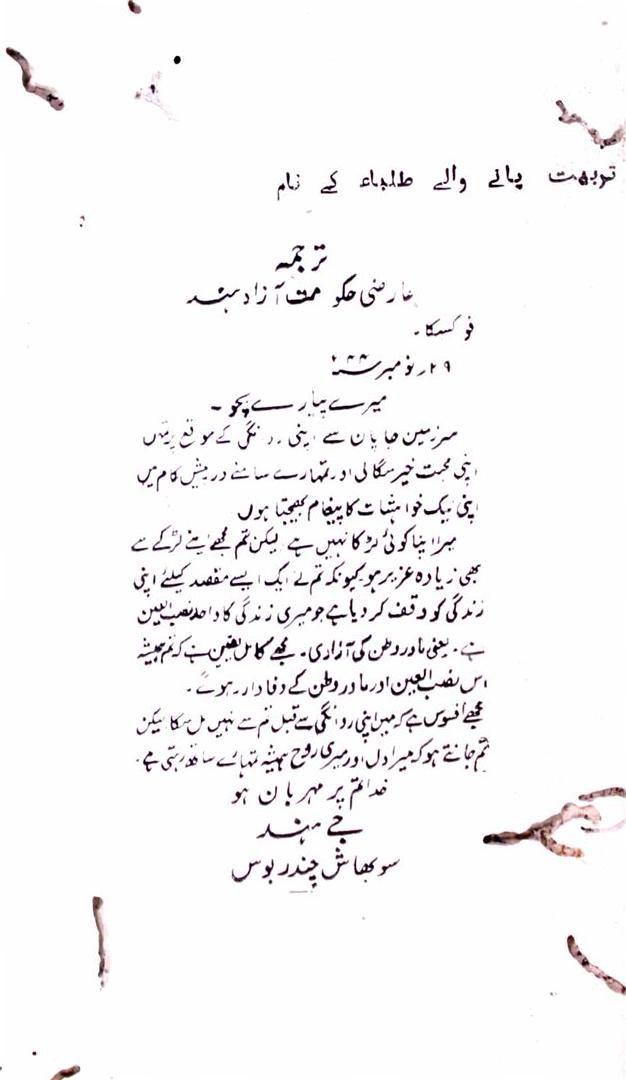 تربیت پانے والے طلباء کے نام
ترجمہ
عارضی حکومت آزاد ہند
فوکسکا۔
۲۹؍ نومبر ۴۴ء
میرے پیارے بچو۔
سرزمین جاپان سے اپنی روانگی کے موقع پر تمہیں
اپنی محبت خیر سگالی اور تمہارے سامنے درپیش کام میں
اپنی نیک خواہشات کا پیغام بھیجتا ہوں
میرا اپنا کوئی لڑکا نہیں ہے لیکن تم مجھے اپنے لڑکے سے
بھی زیادہ عزیز ہو کیونکہ تم نے ایک ایسے مقصد کیلئے اپنی
زندگی کو وقف کر دیا ہے جو میری زندگی کا واحد نصب العین
ہے۔ یعنی مادر وطن کی آزادی۔ مجھے کامل یقین ہے کہ تم ہمیشہ
اس نصب العین اور مادر وطن کے وفادار رہوگے۔
مجھے افسوس ہے کہ میں اپنی روانگی سے قبل تم سے نہیں مل سکا لیکن
تم جانتے ہو کہ میرا دل اور میری روح ہمیشہ تمہارے ساتھ رہتی ہے۔
خدا تم پر مہربان ہو
جے ہند
سوبھاش چندر بوس